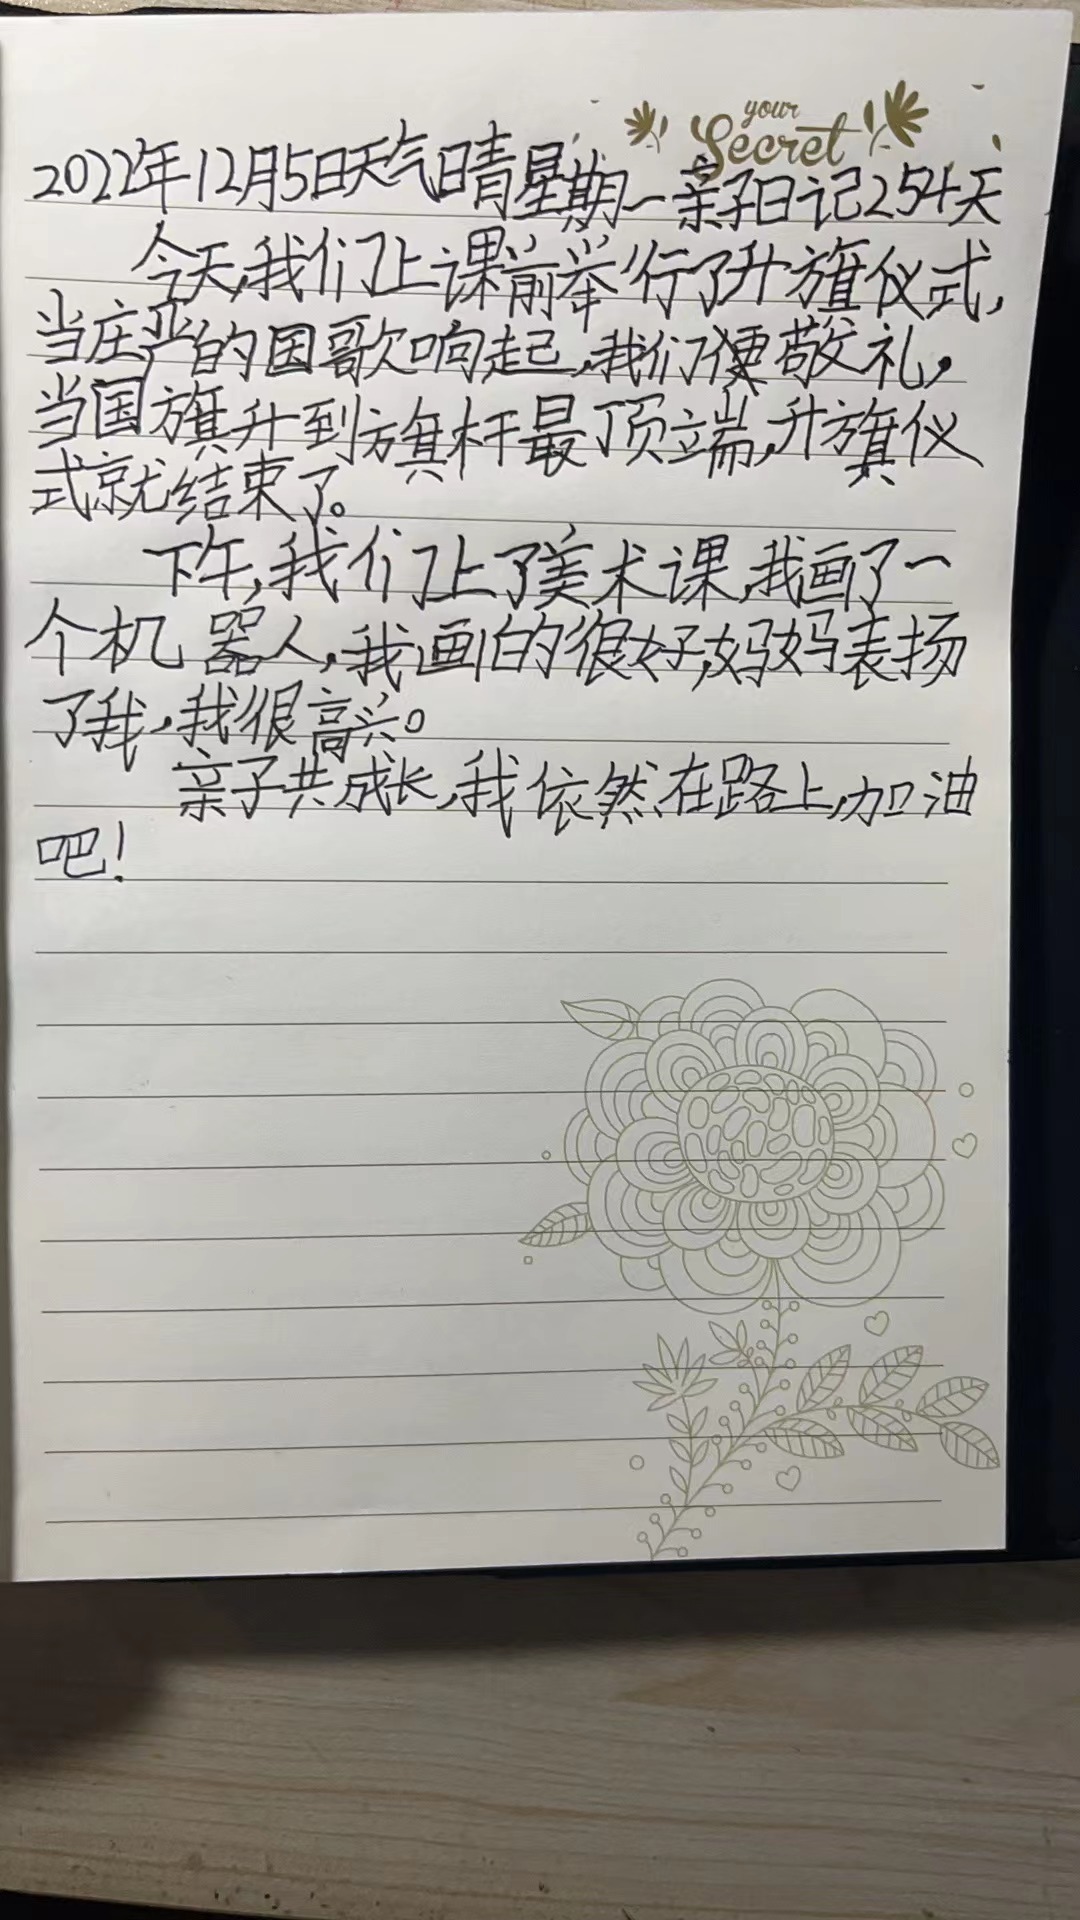 your
Secret
2022年12月5日天气晴星期一亲子日记254天
今天,我们上课前举行了升旗仪式,
当庄严的国歌响起,我们便敬礼,
当国旗升到旗杆最顶端,升旗仪
式就结束了。
下午,我们上了美术课,我画了一
个机器人,我画的很好,妈妈表扬
了我,我很高兴。
亲子共成长,我依然在路上,加油
吧!